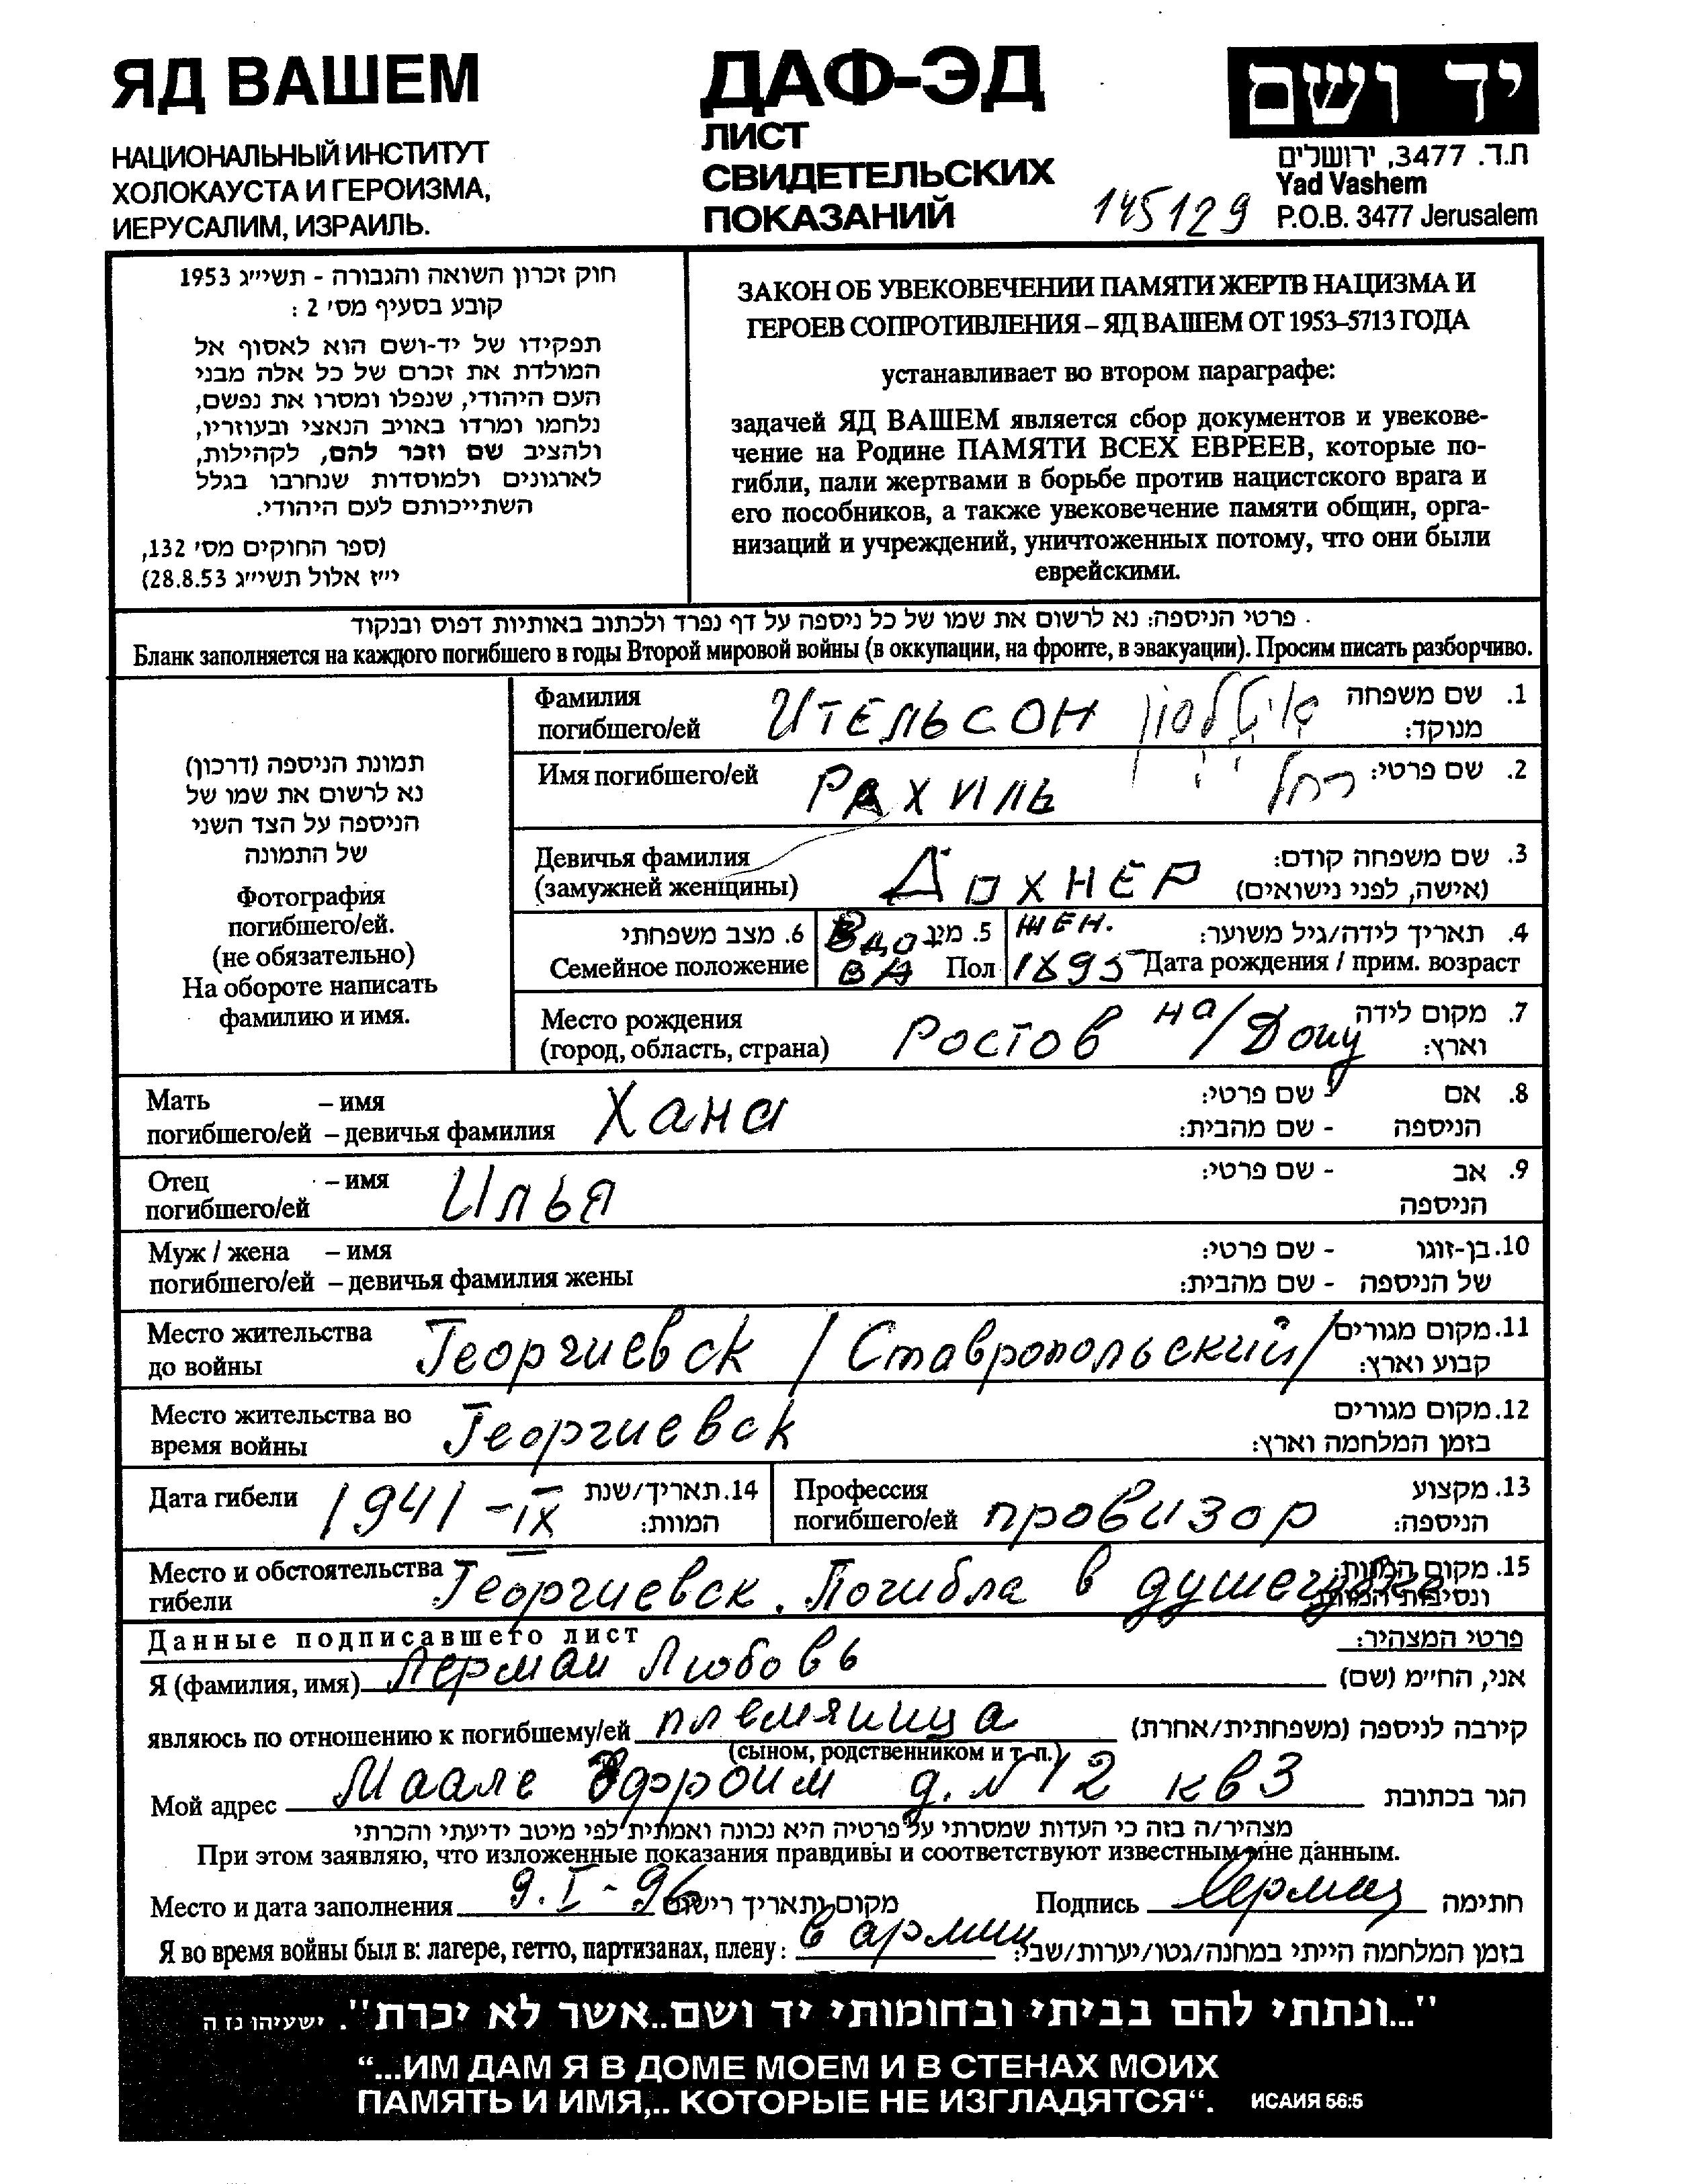 ЯД ВАШЕМ
НАЦИОНАЛЬНЫЙ ИНСТИТУТ
ХОЛОКАУСТА И ГЕРОИЗМА,
ИЕРУСАЛИМ, ИЗРАИЛЬ.
ДАФ-ЭД
ЛИСТ
СВИДЕТЕЛЬСКИХ
ПОКАЗАНИЙ
145129
יד ושם
ת.ד. 3477, ירושלים
Yad Vashem
P.O.B. 3477 Jerusalem
חוק זכרון השואה והגבורה - תשי״ג 1953
קובע בסעיף מס׳ 2 :
תפקידו של יד-ושם הוא לאסוף אל
המולדת את זכרם של כל אלה מבני
העם היהודי, שנפלו ומסרו את נפשם,
נלחמו ומרדו באויב הנאצי ובעוזריו,
ולהציב שם וזכר להם, לקהילות,
לארגונים ולמוסדות שנחרבו בגלל
השתייכותם לעם היהודי.
(ספר החוקים מס׳ 132,
י״ז אלול תשי״ג 28.8.53)
ЗАКОН ОБ УВЕКОВЕЧЕНИИ ПАМЯТИ ЖЕРТВ НАЦИЗМА И
ГЕРОЕВ СОПРОТИВЛЕНИЯ – ЯД ВАШЕМ ОТ 1953–5713 ГОДА
устанавливает во втором параграфе:
задачей ЯД ВАШЕМ является сбор документов и увекове-
чение на Родине ПАМЯТИ ВСЕХ ЕВРЕЕВ, которые по-
гибли, пали жертвами в борьбе против нацистского врага и
его пособников, а также увековечение памяти общин, орга-
низаций и учреждений, уничтоженных потому, что они были
еврейскими.
פרטי הניספה: נא לרשום את שמו של כל ניספה על דף נפרד ולכתוב באותיות דפוס ובנקוד
Бланк заполняется на каждого погибшего в годы Второй мировой войны (в оккупации, на фронте, в эвакуации). Просим писать разборчиво.
תמונת הניספה (דרכון)
נא לרשום את שמו של
הניספה על הצד השני
של התמונה
Фотография
погибшего/ей.
(не обязательно)
На обороте написать
фамилию и имя.
Фамилия ИТЕЛЬСОН איטלסון 1. שם משפחה
погибшего/ей מנוקד:
Имя погибшего/ей РАХИЛЬ רחל 2. שם פרטי:
Девичья фамилия ДОХНЕР 3. שם משפחה קודם:
(замужней женщины) (אישה, לפני נישואים)
6. מצב משפחתי Вдо 5. מין жен. 4. תאריך לידה/גיל משוער:
Семейное положение ва Пол 1895 Дата рождения / прим. возраст
Место рождения Ростов на/Дону 7. מקום לידה
(город, область, страна) וארץ:
Мать – имя Хана - שם פרטי: 8. אם
погибшего/ей – девичья фамилия - שם מהבית: הניספה
Отец – имя Илья - שם פרטי: 9. אב
погибшего/ей הניספה
Муж / жена – имя - שם פרטי: 10. בן-זוגו
погибшего/ей – девичья фамилия жены - שם מהבית: של הניספה
Место жительства Георгиевск /Ставропольский/ 11. מקום מגורים
до войны קבוע וארץ:
Место жительства во Георгиевск 12. מקום מגורים
время войны בזמן המלחמה וארץ:
Дата гибели 1941 – IX 14. תאריך/שנת המוות:
Профессия провизор 13. מקצוע
погибшего/ей הניספה:
Место и обстоятельства Георгиевск. Погибла в душегубке 15. מקום המוות
гибели ונסיבות המוות:
Данные подписавшего лист פרטי המצהיר:
Я (фамилия, имя) Лерман Любовь אני, הח״מ (שם)
являюсь по отношению к погибшему/ей племянница קירבה לניספה (משפחתית/אחרת)
(сыном, родственником и т. п.)
Мой адрес Маале Эфроим д. N 12 кв 3 הגר בכתובת
מצהיר/ה בזה כי העדות שמסרתי על פרטיה היא נכונה ואמתית לפי מיטב ידיעתי והכרתי
При этом заявляю, что изложенные показания правдивы и соответствуют известным мне данным.
Место и дата заполнения 9. I – 96 מקום ותאריך רישום Подпись Лерман חתימה
Я во время войны был в: лагере, гетто, партизанах, плену: в армии בזמן המלחמה הייתי במחנה/גטו/יערות/שבי:
"...ונתתי להם בביתי ובחומותי יד ושם..אשר לא יכרת". ישעיהו נז ה
“...ИМ ДАМ Я В ДОМЕ МОЕМ И В СТЕНАХ МОИХ
ПАМЯТЬ И ИМЯ,.. КОТОРЫЕ НЕ ИЗГЛАДЯТСЯ“. ИСАИЯ 56:5